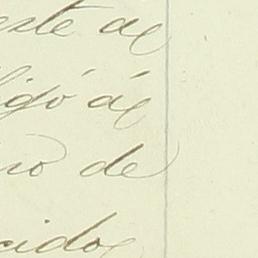 este de
ligó á
ino de
cidos